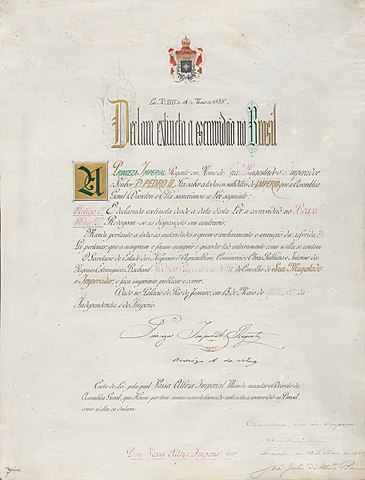 Lei N.º 3353 de 13 de Maio de 1888.
Declara extincta a escravidão no Brasil
A Princeza Imperial Regente em Nome de Sua Magestade o Imperador
o Senhor D. PEDRO II, Faz saber a todos os subditos do IMPERIO que a Assembléa
Geral Decretou e Ella sanccionou a Lei seguinte:
Artigo 1.º É declarada extincta desde a data desta Lei a escravidão no Brazil
Revogam-se as disposições em contrario.
Manda portanto a todas as autoridades a quem o conhecimento e execução da referida
Lei pertencer que a cumpram e façam cumprir e guardar tão inteiramente como n'ella se contém.
O Secretario de Estado dos Negocios d'Agricultura, Commercio e Obras Publicas e Interino dos
Negocios Estrangeiros, Bacharel do Conselho de Sua Magestade
o Imperador, o faça imprimir, publicar e correr.
Dado no Palacio do Rio de Janeiro, em 13 de Maio de
Independencia e do Imperio.
Princeza Imperial Regente
Rodrigo A. da Silva
Carta de Lei, pela qual Vossa Alteza Imperial Manda executar o Decreto da
Assembléa Geral, que Houve por bem sanccionar declarando extincta a escravidão no Brazil
como n'ella se declara.
Para Vossa Alteza Imperial ver.